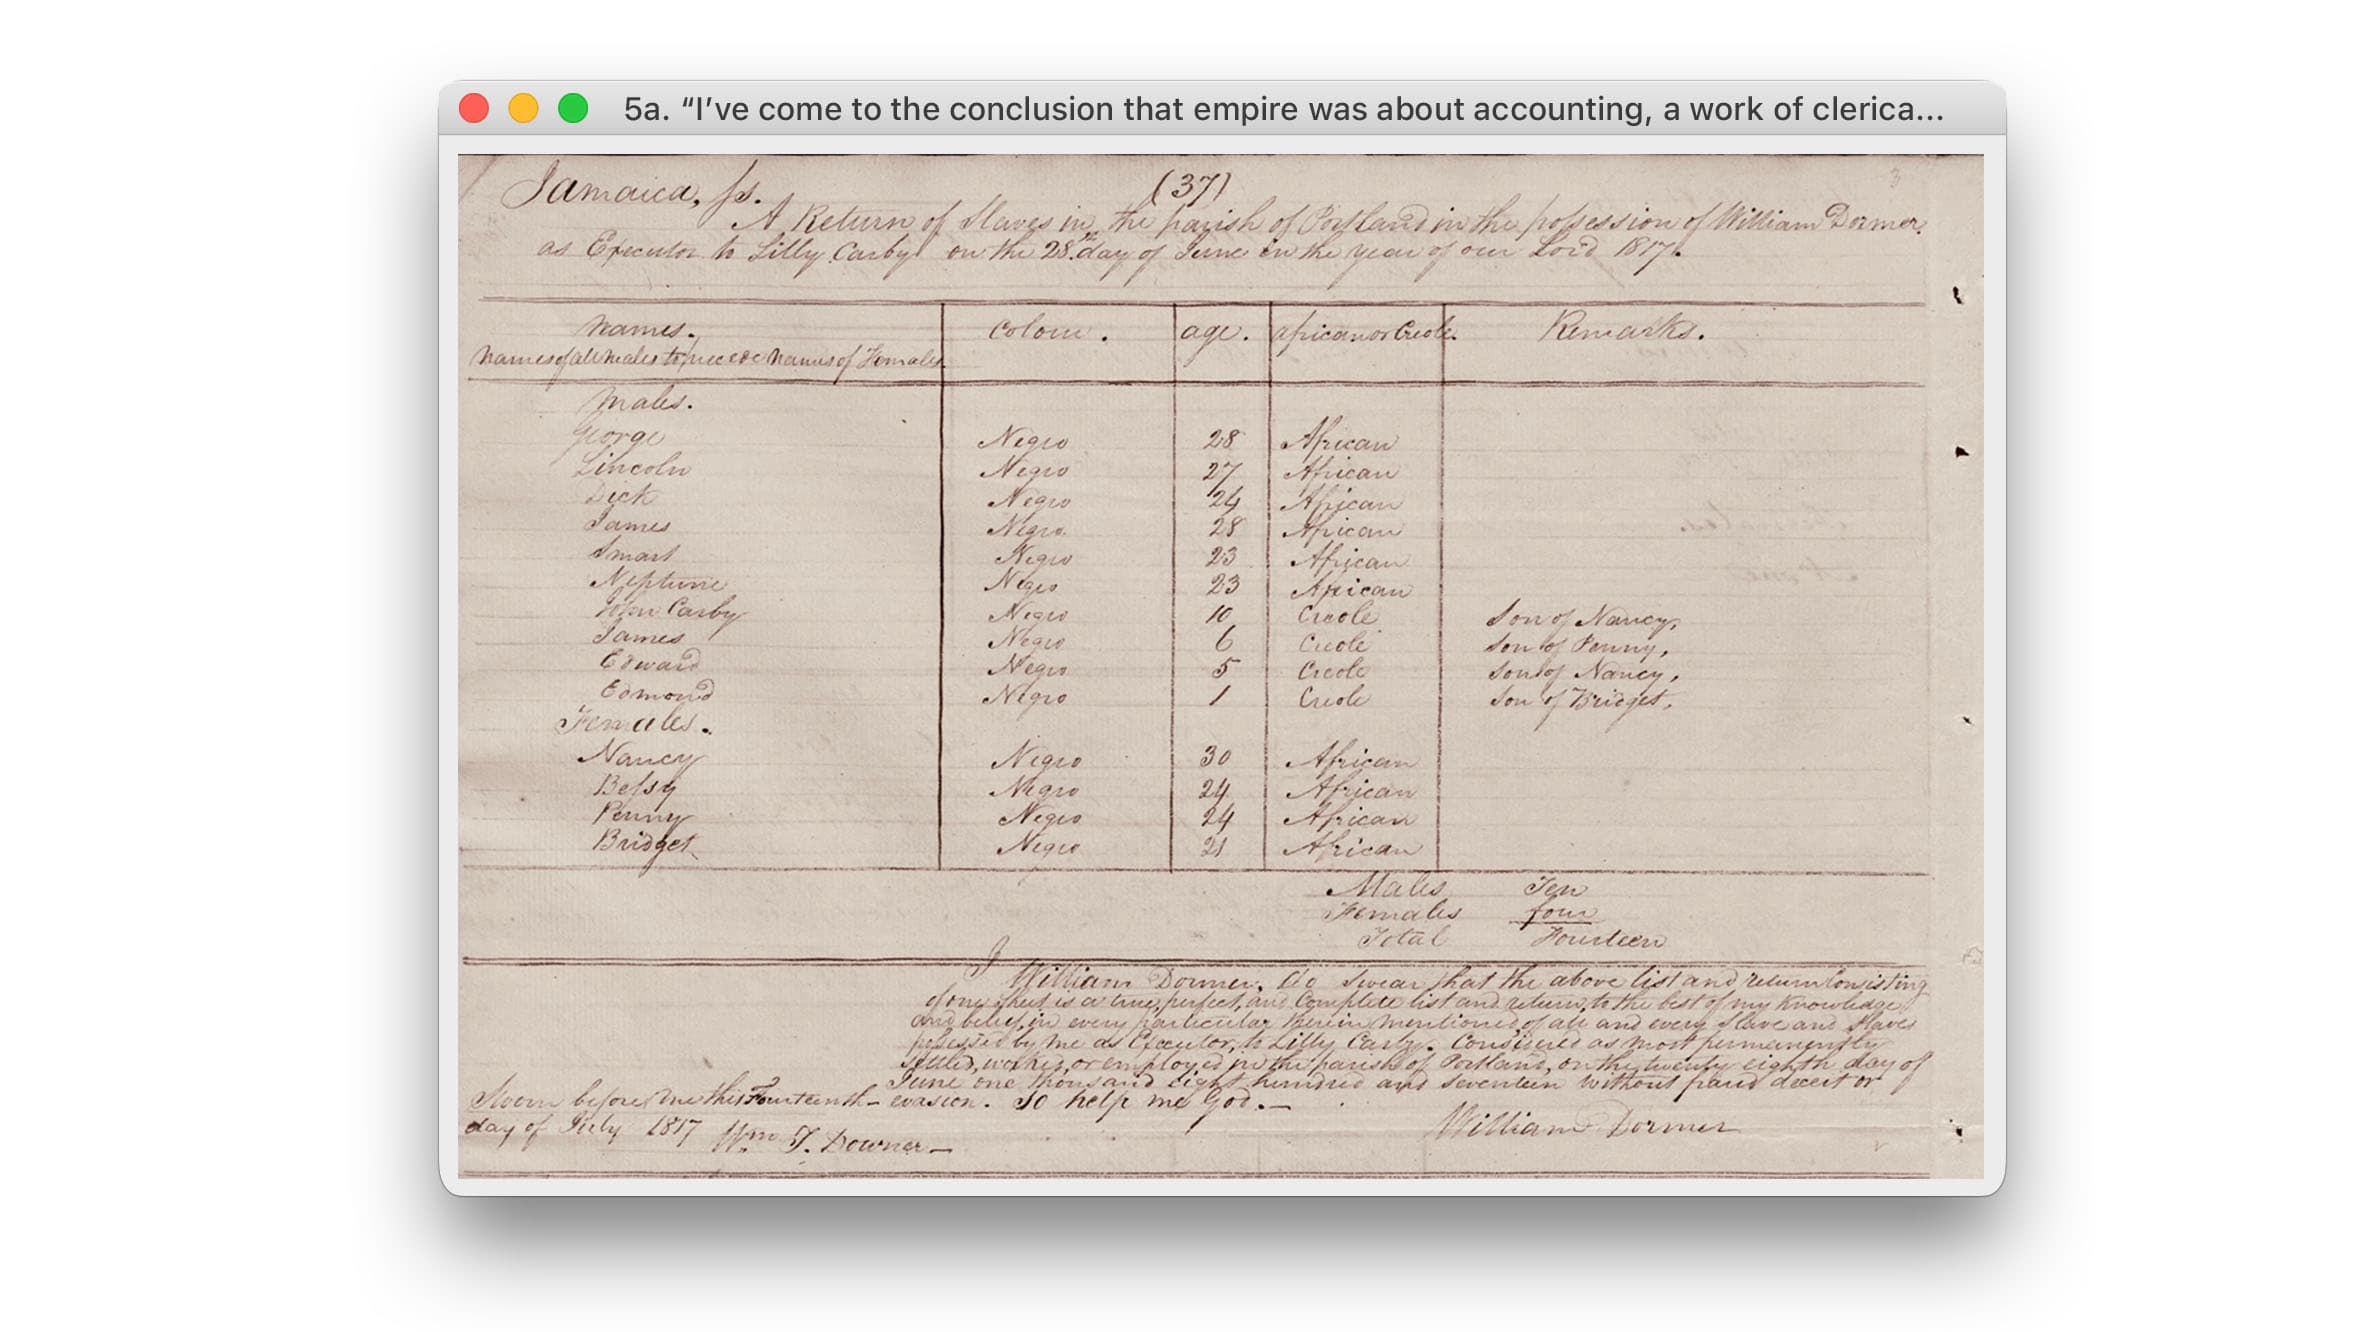 5a. “I’ve come to the conclusion that empire was about accounting, a work of clerica...
Jamaica, ss. (37) 3
A Return of Slaves in the parish of Portland in the possession of William Dormer
as Executor to Lilly Carby on the 28th day of June in the year of our Lord 1817.
Names. Colour. age. African or Creole. Remarks.
Names of all males to precede names of Females.
Males.
George Negro 28 African
Lincoln Negro 27 African
Dick Negro 24 African
James Negro 28 African
Smart Negro 23 African
Neptune Negro 23 African
John Carby Negro 10 Creole Son of Nancy,
James Negro 6 Creole Son of Penny,
Edward Negro 5 Creole Son of Nancy,
Edmond Negro 1 Creole Son of Bridget,
Females.
Nancy Negro 30 African
Betsy Negro 24 African
Penny Negro 24 African
Bridget Negro 21 African
Males Ten
Females four
Total Fourteen
I William Dormer, do swear that the above list and return Consisting
of one sheet is a true, perfect, and Complete list and return, to the best of my knowledge
and belief, in every particular therein mentioned, of all and every Slave and Slaves
possessed by me as Executor, to Lilly Carby. Considered as most permanently
settled, worked, or employed in the parish of Portland, on the twenty eighth day of
June one thousand eight hundred and seventeen without fraud deceit or
evasion. So help me God.—
Sworn before me this Fourteenth
day of July 1817 Wm. T. Downer— William Dormer